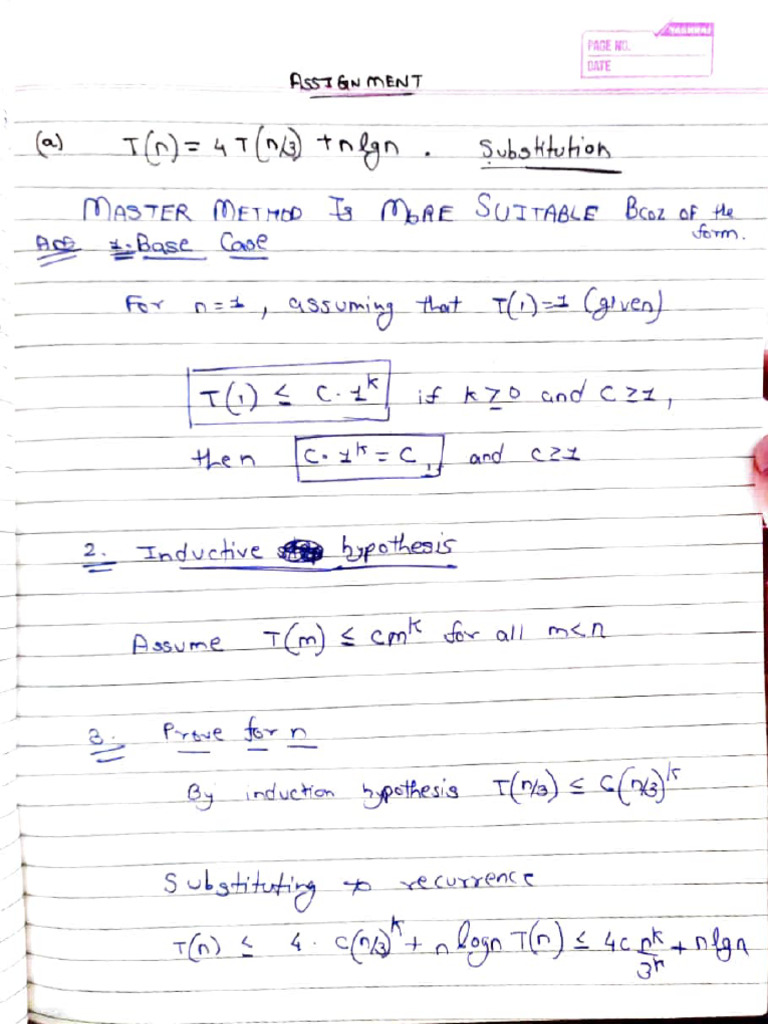 PAGE NO.
DATE
ASSIGNMENT
(a) T(n) = 4T(n/3) + nlgn . Substitution
MASTER METHOD IS MORE SUITABLE Bcoz OF the form.
1. Base Case
For n=1, assuming that T(1)=1 (given)
T(1) ≤ C·1^k if k≥0 and C≥1,
then C·1^k = C and c≥1
2. Inductive hypothesis
Assume T(m) ≤ cm^k for all m<n
3. Prove for n
By induction hypothesis T(n/3) ≤ C(n/3)^k
Substituting recurrence
T(n) ≤ 4·C(n/3)^k + nlogn T(n) ≤ 4c n^k/3^k + nlgn